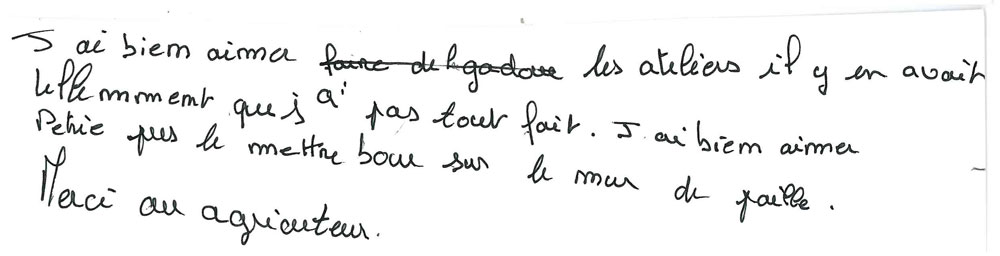 J ai biem aimer faire de l gadoue les ateliers il y en avait
tellemment que j ai pas tout fait. J ai biem aimer
Petrie pus le mettre boue sur le mur de paille.
Merci au agricuteur.